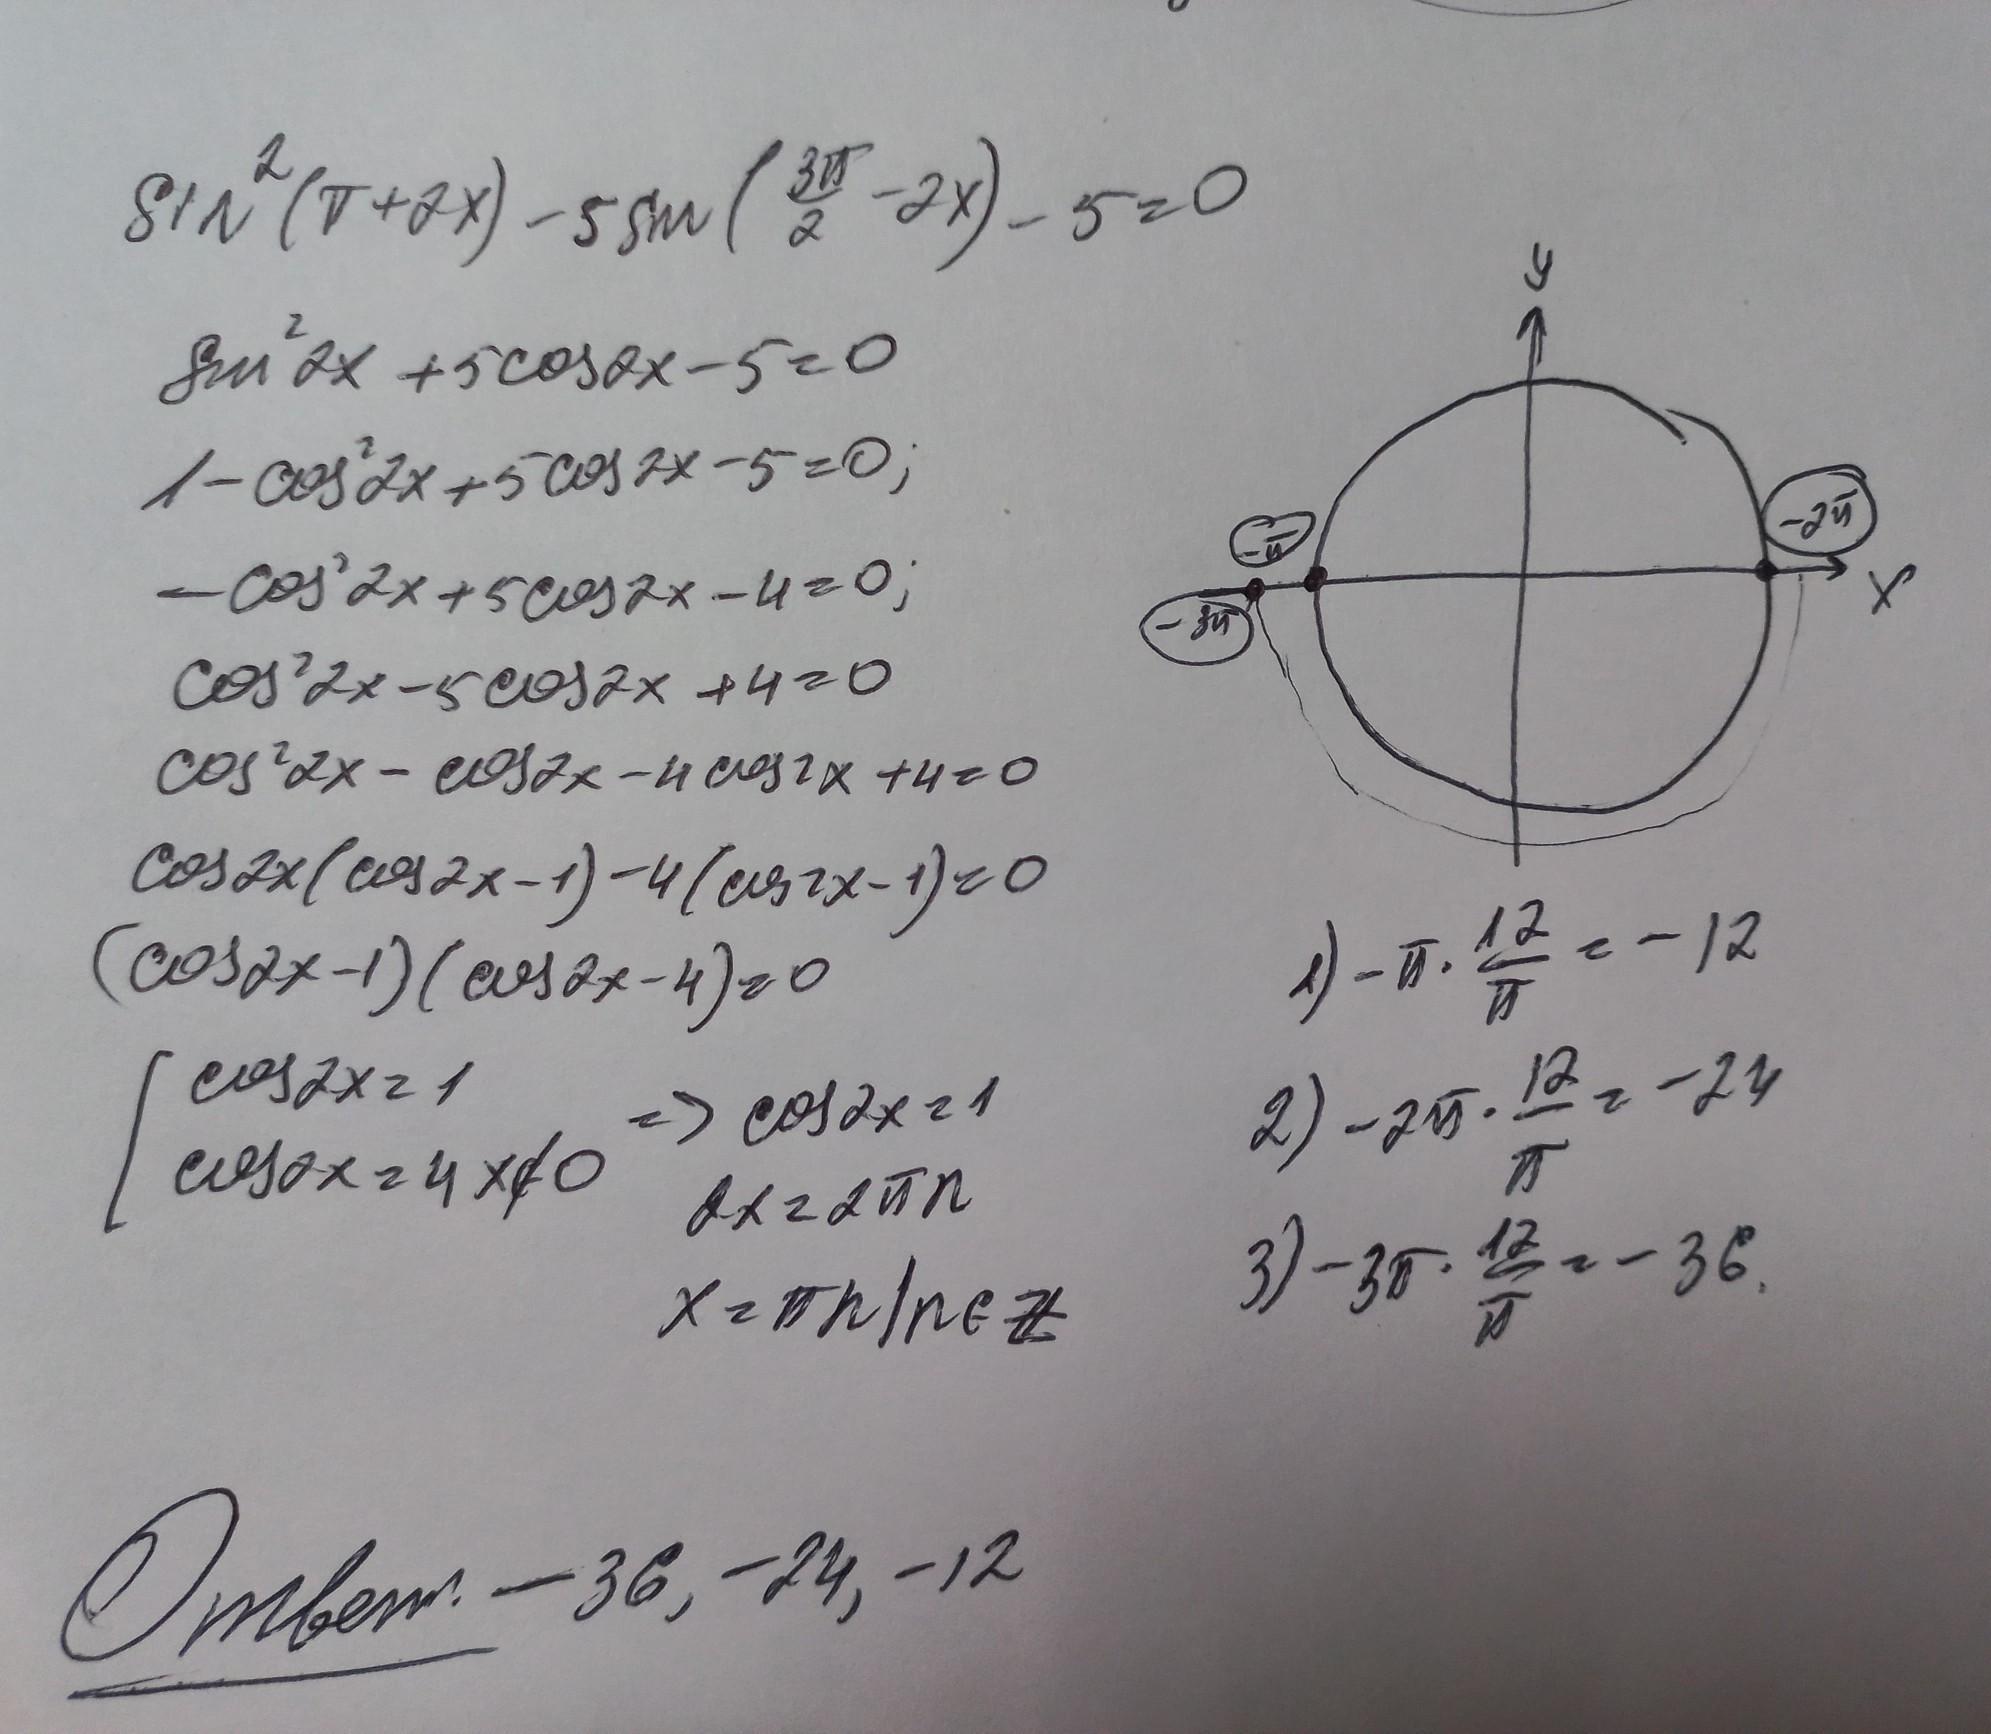 sin²(π+2x) - 5 sin(3π/2 - 2x) - 5 = 0
sin²2x + 5cos2x - 5 = 0
1 - cos²2x + 5cos2x - 5 = 0;
-cos²2x + 5cos2x - 4 = 0;
cos²2x - 5cos2x + 4 = 0
cos²2x - cos2x - 4cos2x + 4 = 0
cos2x(cos2x - 1) - 4(cos2x - 1) = 0
(cos2x - 1)(cos2x - 4) = 0
[ cos2x = 1
cos2x = 4 x∉0
=> cos2x = 1
2x = 2πn
x = πn/n∈Z
y
-π
-2π
-3π
x
1) -π · 12/π = -12
2) -2π · 12/π = -24
3) -3π · 12/π = -36.
Ответ: -36, -24, -12